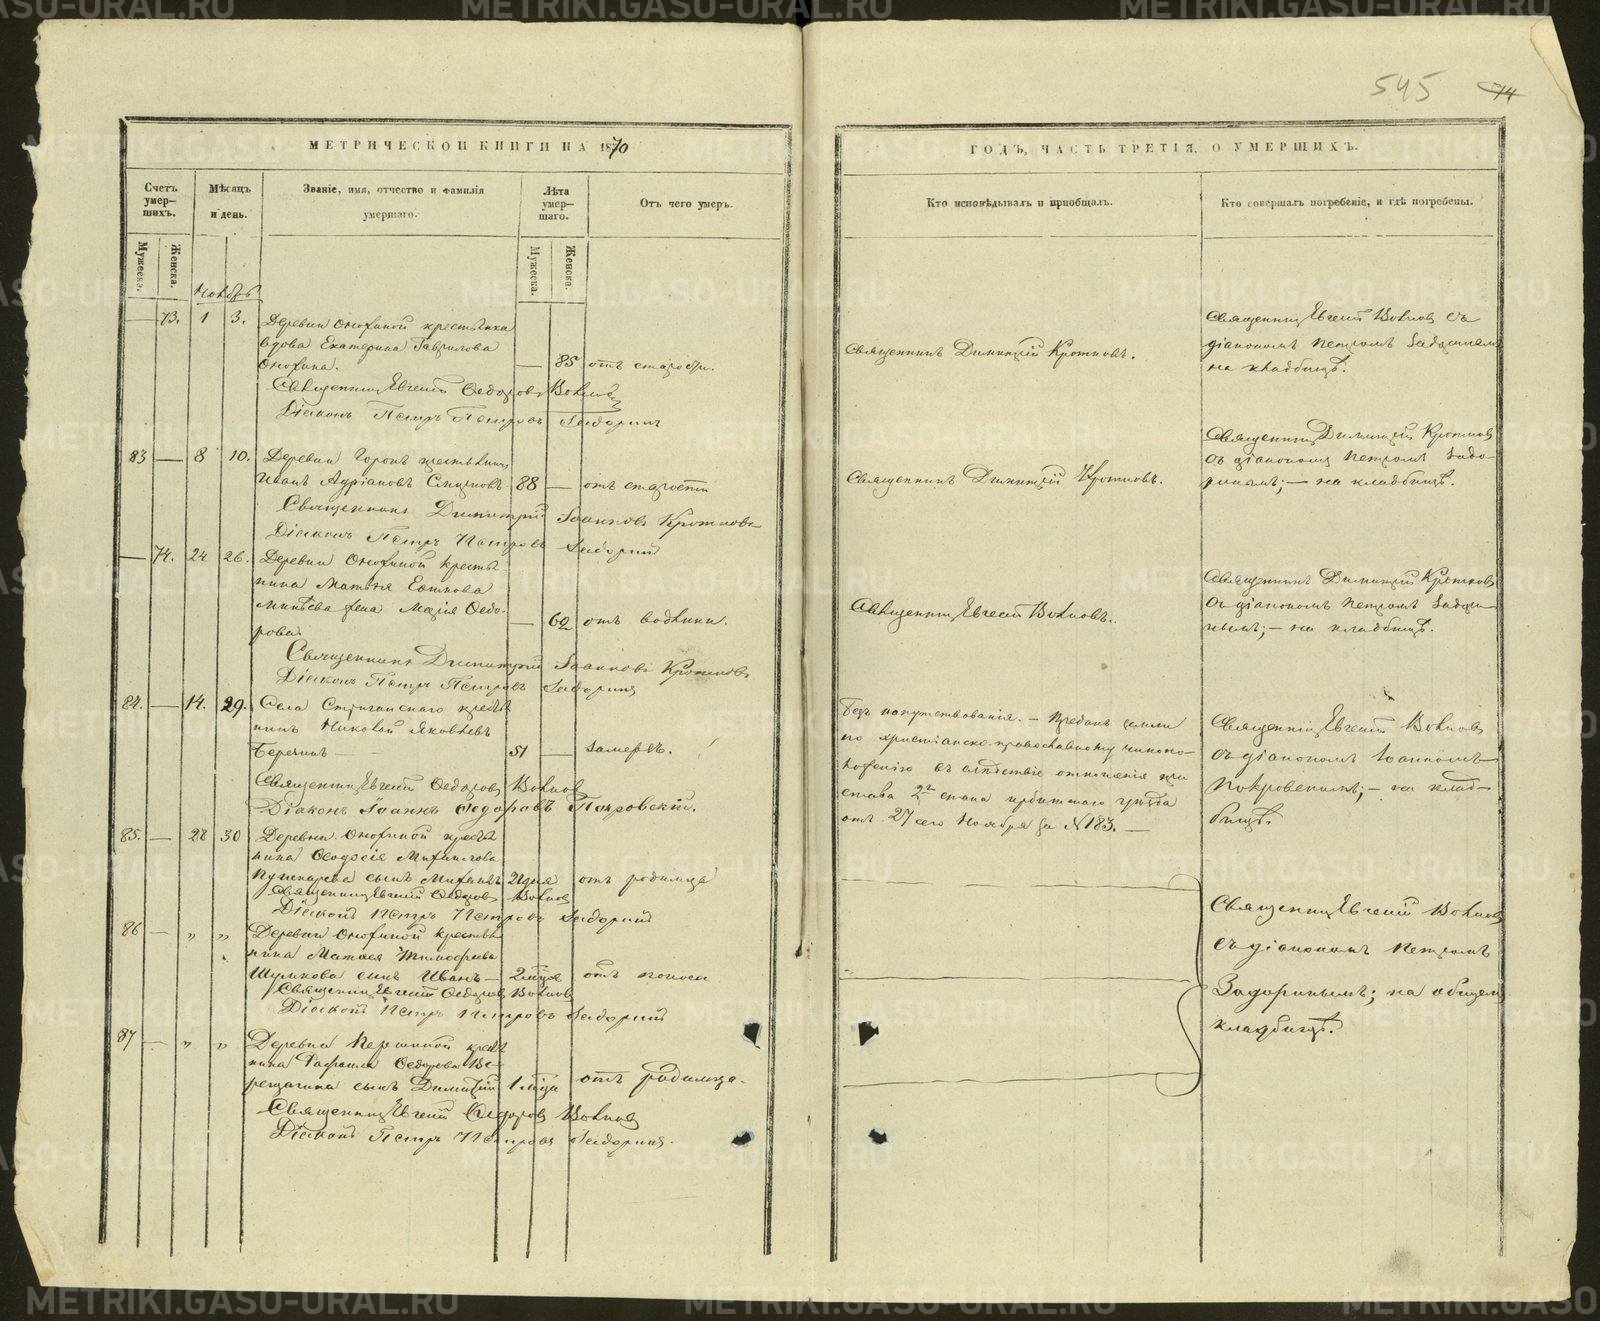 545 74
МЕТРИЧЕСКОЙ КНИГИ НА 1870
Счетъ умер-
шихъ.
Мѣсяцъ
и день.
Званіе, имя, отчество и фамилія
умершаго.
Лѣта
умер-
шаго.
Отъ чего умеръ.
Мужеска.
Женска.
Мужеска.
Женска.
Ноябрь
— 73. 1 3. Деревни Онохиной крестьянка
вдова Екатерина Гаврилова
Онохина. — 85 отъ старости.
Священникъ Евгеній Ѳедоровъ Волковъ
Діаконъ Петръ Петровъ Задоринъ
83 — 8 10. Деревни
Иванъ Адріановъ Смирновъ 88 — отъ старости
Священникъ Димитрій Іоанновъ Кротковъ
Діаконъ Петръ Петровъ Задоринъ
— 74. 24 26. Деревни Онохиной крестья-
нина
жена Марія Ѳедо-
рова. — 62 отъ водянки.
Священникъ Димитрій Іоанновъ Кротковъ
Діаконъ Петръ Петровъ Задоринъ
84. — 14. 29. Села Стриганскаго крестья
нинъ Николай Яковлевъ
51 — Замерзъ.
Священникъ Евгеній Ѳедоровъ Волковъ
Діаконъ Іоаннъ Ѳедоровъ Покровскій.
85. — 28 30 Деревни Онохиной крестья
нина Ѳеодосія Михаилова
сынъ Михаилъ 2 дня отъ родимца
Священникъ Евгеній Ѳедоровъ Волковъ
Діаконъ Петръ Петровъ Задоринъ
86 — „ „ Деревни Онохиной крестья
нина Матвея Тимофеева
сынъ Иванъ — отъ поноса
Священникъ Евгеній Ѳедоровъ Волковъ
Діаконъ Петръ Петровъ Задоринъ
87 — „ „ Деревни Першиной крестья
нина Ѳедорова Ве-
рещагина сынъ Димитрій отъ родимца.
Священникъ Евгеній Ѳедоровъ Волковъ
Діаконъ Петръ Петровъ Задоринъ.
ГОДЪ, ЧАСТЬ ТРЕТІЯ, О УМЕРШИХЪ.
Кто исповѣдывалъ и пріобщалъ.
Кто совершалъ погребеніе, и гдѣ погребены.
Священникъ Димитрій Кротковъ.
Священникъ Евгеній Волковъ съ
діакономъ Петромъ Задоринымъ
на кладбищѣ.
Священникъ Димитрій Кротковъ.
Священникъ Димитрій Кротковъ
съ діакономъ Петромъ Задо-
ринымъ; — на кладбищѣ.
Священникъ Евгеній Волковъ.
Священникъ Димитрій Кротковъ
съ діакономъ Петромъ Задори-
нымъ; — на кладбищѣ.
Безъ напутствованія. — Преданъ землѣ
по христіанско-православному чинопо-
ложенію въ слѣдствіе отношенія при
става 2го стана Ирбитскаго уѣзда
отъ 27 сего Ноября за № 183. —
Священникъ Евгеній Волковъ
съ діакономъ Іоанномъ
Покровскимъ; — на клад-
бищѣ.
Священникъ Евгеній Волковъ
съ діакономъ Петромъ
Задоринымъ; на общемъ
кладбищѣ.
METRIKI.GASO-URAL.RU